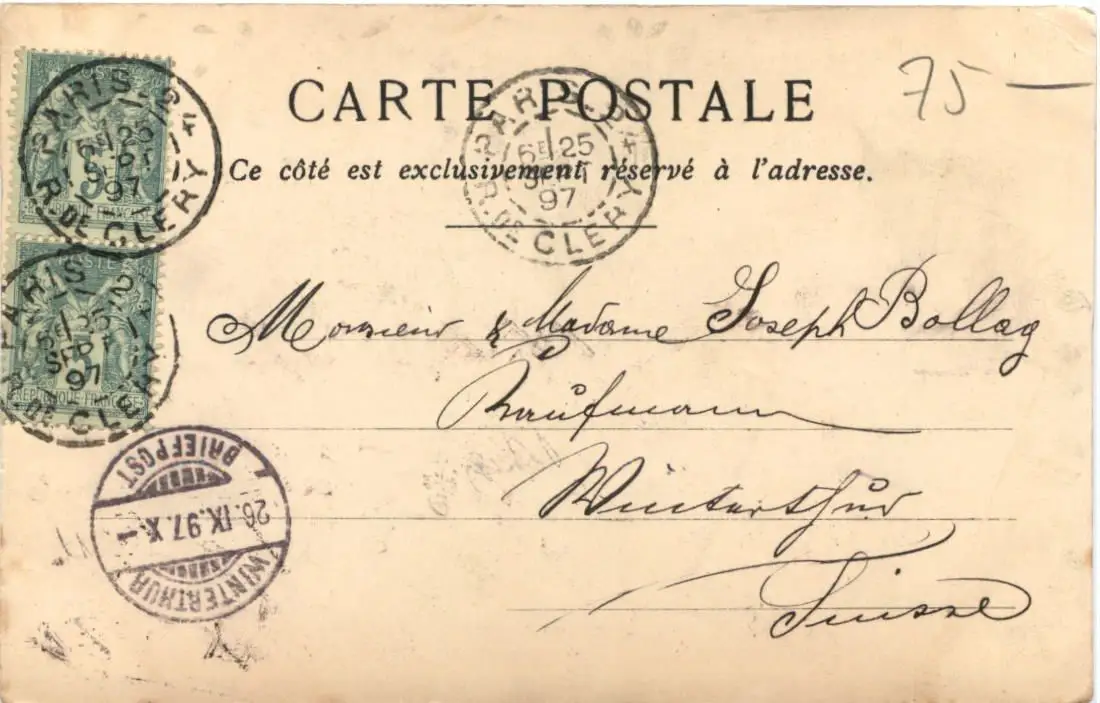 CARTE POSTALE
75 —
Ce côté est exclusivement réservé à l'adresse.
PARIS - 24
6E 25
SEPT
97
R. DE CLERY
PARIS - 24
6E 25
SEPT
97
R. DE CLERY
POSTES
RÉPUBLIQUE FRANÇAISE
PARIS - 24
6E 25
SEPT
97
R. DE CLERY
RÉPUBLIQUE FRANÇAISE
Monsieur & Madame Joseph Bollag
Kaufmann
Winterthur
Suisse
WINTERTHUR
26.IX.97.X-1
BRIEFPOST